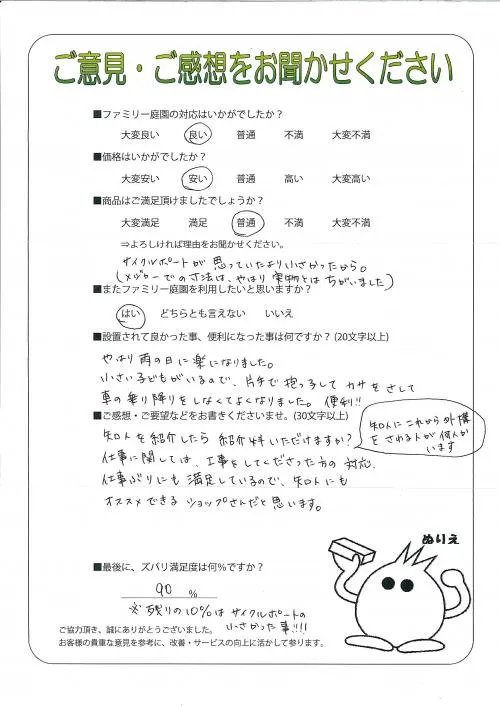 ご意見・ご感想をお聞かせください
■ファミリー庭園の対応はいかがでしたか？
大変良い 良い 普通 不満 大変不満
■価格はいかがでしたか？
大変安い 安い 普通 高い 大変高い
■商品はご満足頂けましたでしょうか？
大変満足 満足 普通 不満 大変不満
⇒よろしければ理由をお聞かせください。
サイクルポートが思っていたより小さかったから。
(メジャーでの寸法は、やはり実物とはちがいました)
■またファミリー庭園を利用したいと思いますか？
はい どちらとも言えない いいえ
■設置されて良かった事、便利になった事は何ですか？(20文字以上)
やはり雨の日に楽になりました。
小さい子どもがいるので、片手で抱っこして カサをさして
車の乗り降りをしなくてよくなりました。便利!!
■ご感想・ご要望などをお書きくださいませ。(30文字以上)
知人を紹介したら紹介料いただけますか？
知人にこれから外構
をされる人が何人か
います
仕事に関しては、工事をしてくださった方の対応、
仕事ぶりにも満足しているので、知人にも
オススメできるショップさんだと思います。
ぬりえ
■最後に、ズバリ満足度は何%ですか？
90 %
※残りの10%はサイクルポートの
小さかった事!!!!
ご協力頂き、誠にありがとうございました。
お客様の貴重な意見を参考に、改善・サービスの向上に活かして参ります。